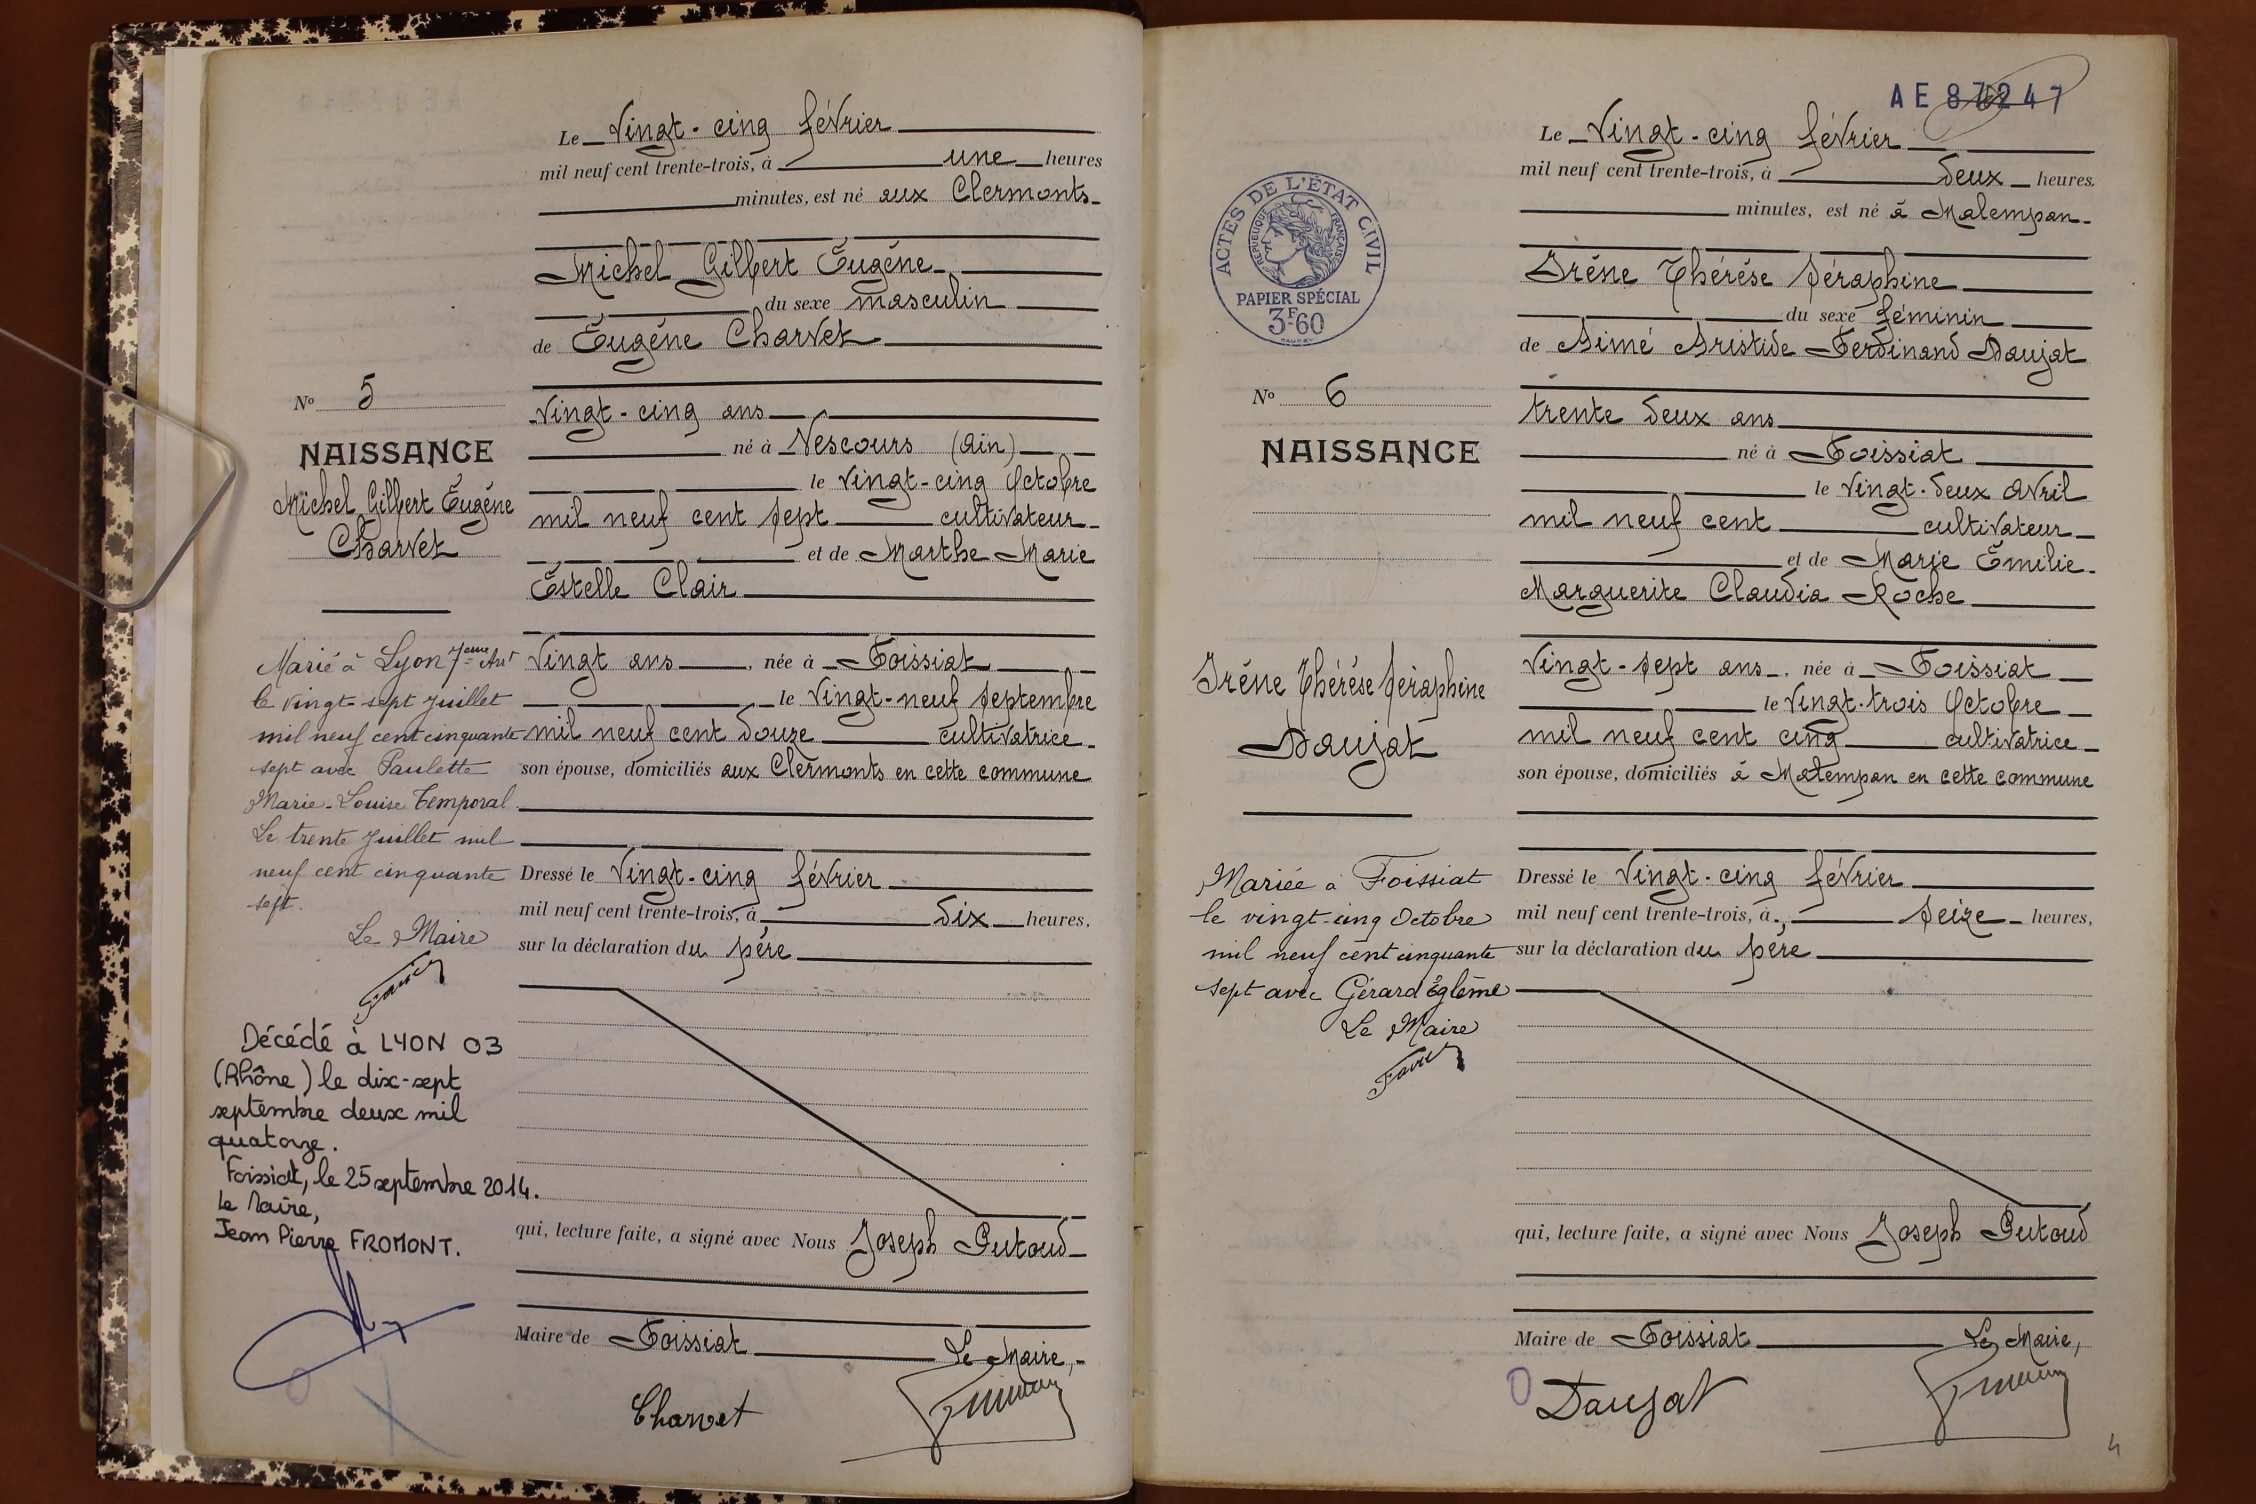 Le Vingt-cinq février
mil neuf cent trente-trois, à une heures
minutes, est né aux Clermonts
Michel Gilbert Eugène
du sexe masculin
de Eugène Charvet
Vingt-cinq ans
né à Vescours (Ain)
le vingt-cinq Octobre
mil neuf cent sept cultivateur
et de Marthe Marie
Estelle Clair
Vingt ans, née à Foissiat
le Vingt-neuf septembre
mil neuf cent douze cultivatrice
son épouse, domiciliés aux Clermonts en cette commune
Dressé le Vingt-cinq février
mil neuf cent trente-trois, à dix heures,
sur la déclaration du père
qui, lecture faite, a signé avec Nous Joseph Putoud
Maire de Foissiat Le Maire,
Charvet
No 5
NAISSANCE
Michel Gilbert Eugène
Charvet
Marié à Lyon 7eme Art
le vingt-sept Juillet
mil neuf cent cinquante
sept avec Paulette
Marie-Louise Temporal
Le trente Juillet mil
neuf cent cinquante
sept.
Le Maire
Décédé à LYON 03
(Rhône) le dix-sept
septembre deux mil
quatorze.
Foissiat, le 25 septembre 2014.
Le Maire,
Jean Pierre FROMONT.
AE 87247
Le Vingt-cinq février
mil neuf cent trente-trois, à deux heures,
minutes, est né à Malempan
Irène Thérèse Séraphine
du sexe féminin
de Aimé Aristide Ferdinand Daujat
trente deux ans
né à Foissiat
le vingt-deux Avril
mil neuf cent cultivateur
et de Marie Emilie
Marguerite Claudia Roche
Vingt-sept ans, née à Foissiat
le Vingt-trois Octobre
mil neuf cent cinq cultivatrice
son épouse, domiciliés à Malempan en cette commune
Dressé le Vingt-cinq février
mil neuf cent trente-trois, à seize heures,
sur la déclaration du père
qui, lecture faite, a signé avec Nous Joseph Putoud
Maire de Foissiat Le Maire,
Daujat
ACTES DE L'ÉTAT CIVIL
RÉPUBLIQUE FRANÇAISE
PAPIER SPÉCIAL
3F60
No 6
NAISSANCE
Irène Thérèse Séraphine
Daujat
Mariée à Foissiat
le vingt-cinq Octobre
mil neuf cent cinquante
sept avec Gérard Eglème
Le Maire
4